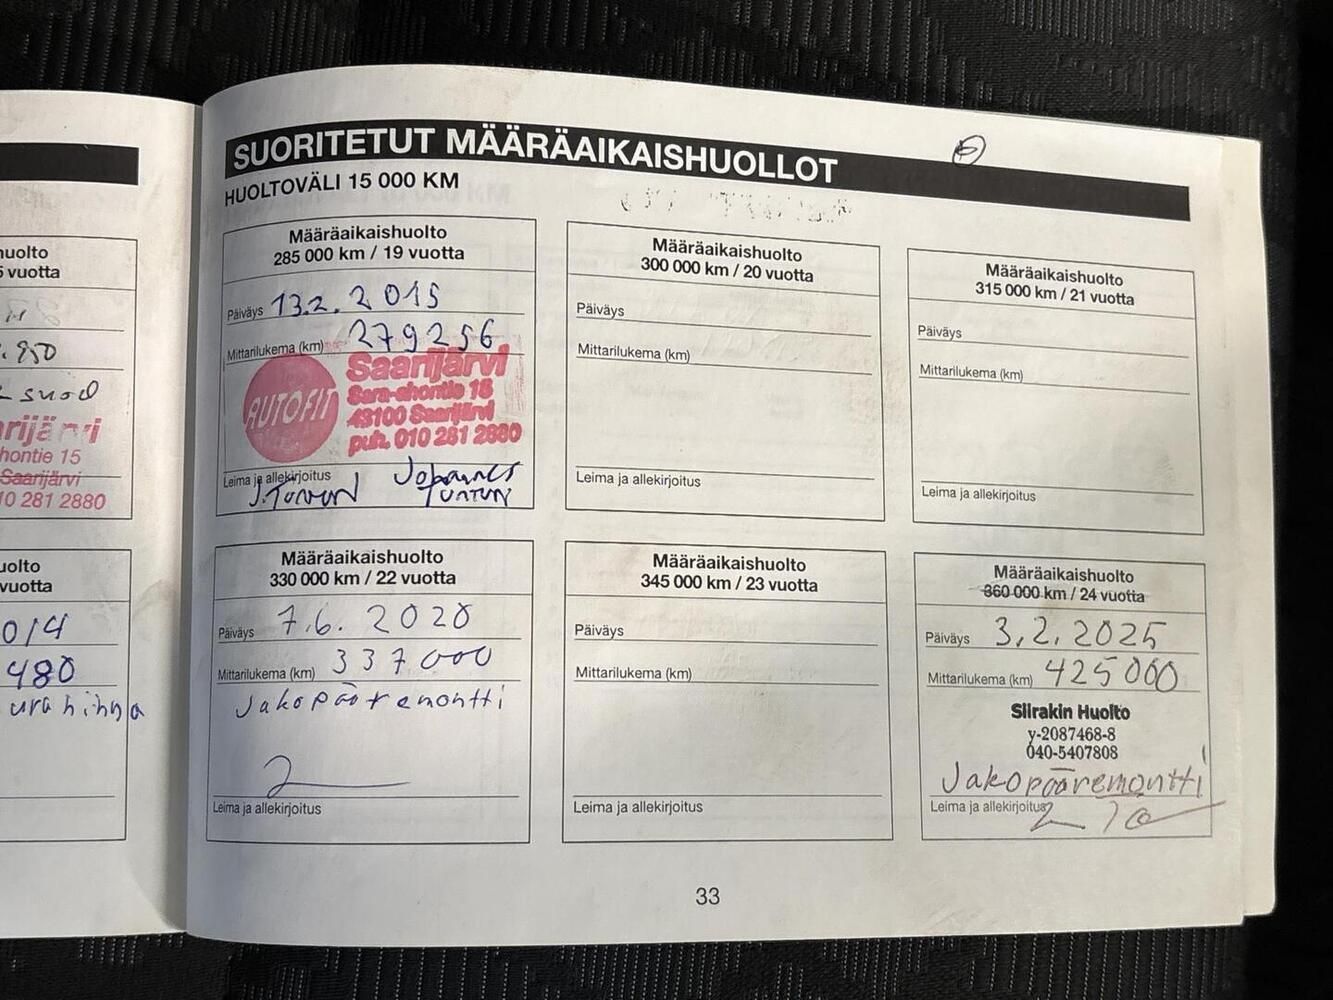 uolto
5 vuotta
.950
suod
arijärvi
hontie 15
Saarijärvi
10 281 2880
uolto
vuotta
014
480
urahihna
SUORITETUT MÄÄRÄAIKAISHUOLLOT
HUOLTOVÄLI 15 000 KM
Määräaikaishuolto
285 000 km / 19 vuotta
Päiväys 13.2.2015
Mittarilukema (km) 279256
AUTOFIT
Saarijärvi
Sara-ahontie 15
43100 Saarijärvi
puh. 010 281 2880
Leima ja allekirjoitus
Määräaikaishuolto
300 000 km / 20 vuotta
Päiväys
Mittarilukema (km)
Leima ja allekirjoitus
Määräaikaishuolto
315 000 km / 21 vuotta
Päiväys
Mittarilukema (km)
Leima ja allekirjoitus
Määräaikaishuolto
330 000 km / 22 vuotta
Päiväys 7.6.2020
Mittarilukema (km) 337000
Jakopääremontti
Leima ja allekirjoitus
Määräaikaishuolto
345 000 km / 23 vuotta
Päiväys
Mittarilukema (km)
Leima ja allekirjoitus
Määräaikaishuolto
360 000 km / 24 vuotta
Päiväys 3.2.2025
Mittarilukema (km) 425000
Siirakin Huolto
y-2087468-8
040-5407808
Jakopääremontti
Leima ja allekirjoitus
33